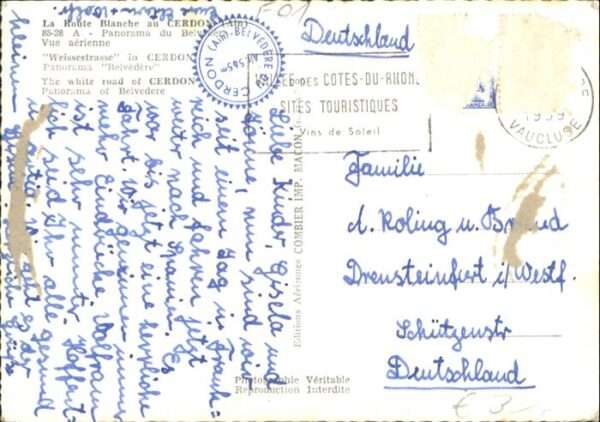 La Route Blanche au CERDON (Ain)
85-28 A - Panorama du Belvédère
Vue aérienne
"Weissestrasse" in CERDON
Panorama "Belvedere"
The white road of CERDON
Panorama of Belvedere
CERDON (Ain) - BELVÉDÈRE
F01
Deutschland
DES COTES-DU-RHONE
SITES TOURISTIQUES
Vins de Soleil
1959
VAUCLUSE
Liebe Kinder, Gisela und
nun sind wir
seit einem Tag in Frank=
reich und fahren jetzt
weiter nach Spanien. Es
war bis jetzt eine herrliche
Fahrt. Wir gewinnen immer
mehr Eindrücke. Wolfram
ist sehr munter. Hoffent=
lich seid Ihr alle gesund
geht es der
kleinen
Editions Aériennes COMBIER IMP. MACON
Familie
A. Roling u. Brand
Drensteinfurt i/Westf.
Schützenstr
Deutschland
Photographie Véritable
Reproduction Interdite
€ 3,-